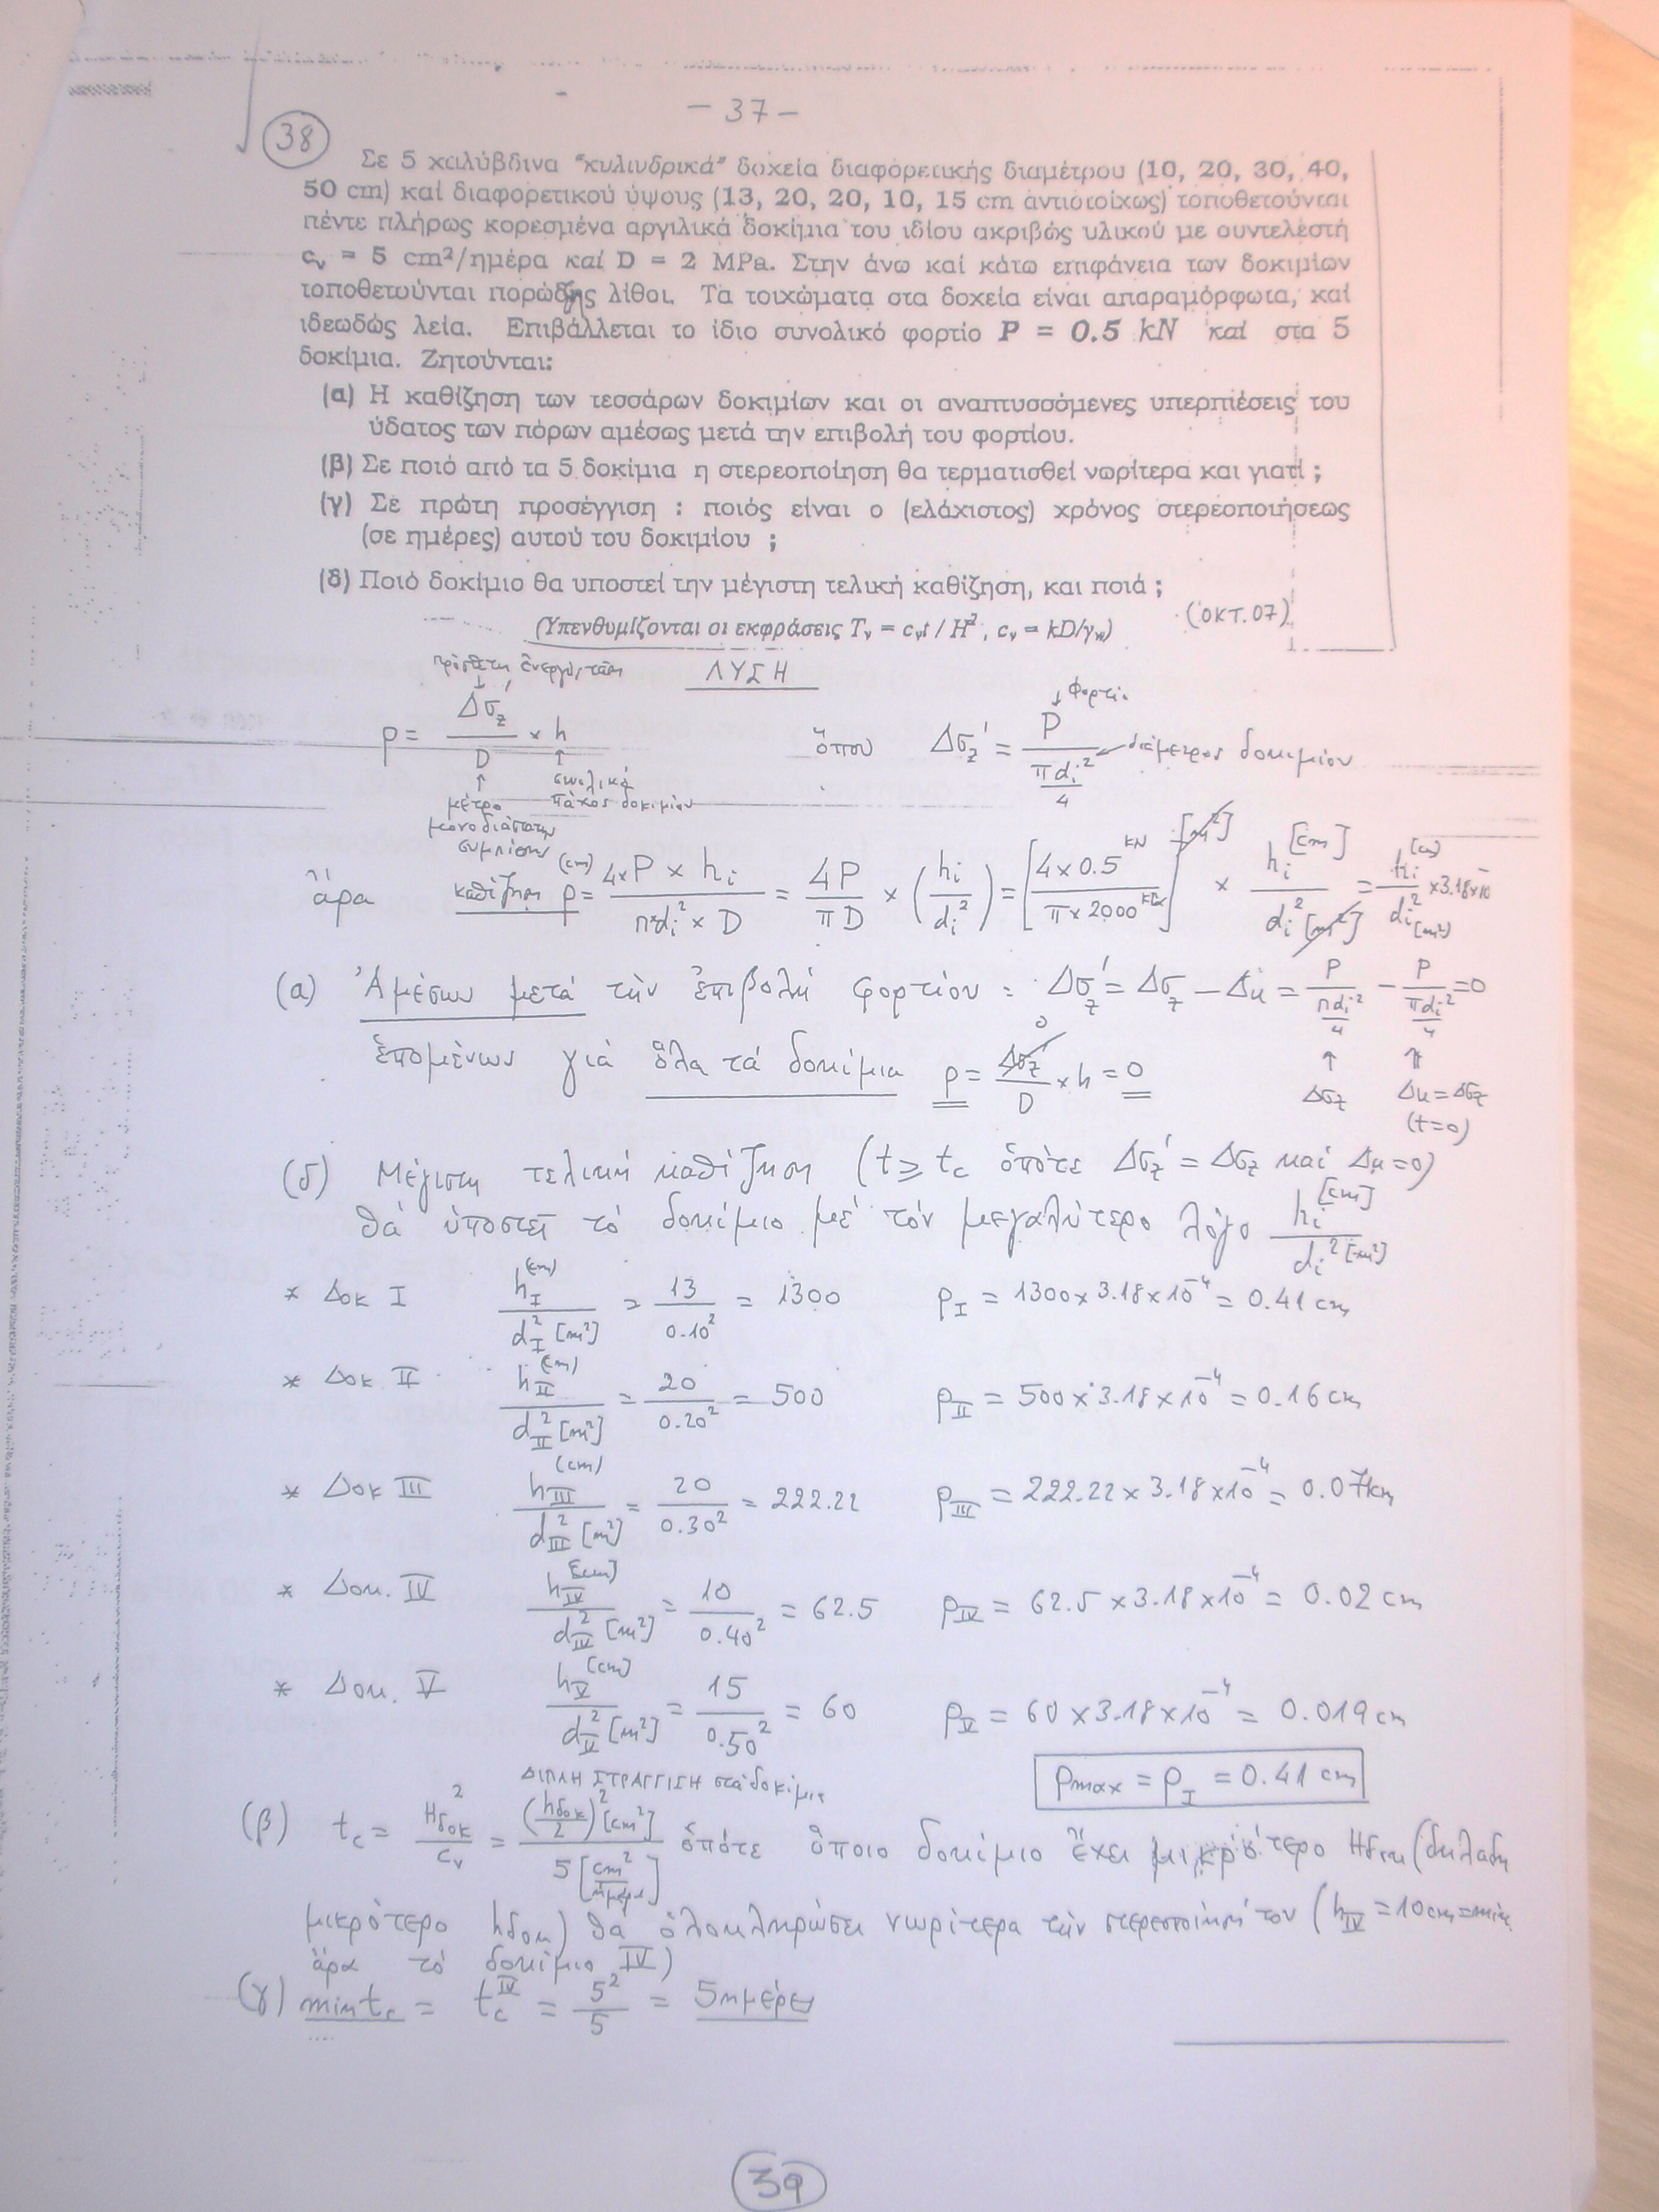 - 37 -
38
Σε 5 χαλύβδινα "κυλινδρικά" δοχεία διαφορετικής διαμέτρου (10, 20, 30, 40,
50 cm) καί διαφορετικού ύψους (13, 20, 20, 10, 15 cm αντιστοίχως) τοποθετούνται
πέντε πλήρως κορεσμένα αργιλικά δοκίμια του ιδίου ακριβώς υλικού με συντελεστή
cv = 5 cm²/ημέρα καί D = 2 MPa. Στην άνω καί κάτω επιφάνεια των δοκιμίων
τοποθετούνται πορώδης λίθοι. Τα τοιχώματα στα δοχεία είναι απαραμόρφωτα, καί
ιδεωδώς λεία. Επιβάλλεται το ίδιο συνολικό φορτίο P = 0.5 kN καί στα 5
δοκίμια. Ζητούνται:
(α) Η καθίζηση των τεσσάρων δοκιμίων και οι αναπτυσσόμενες υπερπιέσεις του
ύδατος των πόρων αμέσως μετά την επιβολή του φορτίου.
(β) Σε ποιό από τα 5 δοκίμια η στερεοποίηση θα τερματισθεί νωρίτερα και γιατί ;
(γ) Σε πρώτη προσέγγιση : ποιός είναι ο (ελάχιστος) χρόνος στερεοποιήσεως
(σε ημέρες) αυτού του δοκιμίου ;
(δ) Ποιό δοκίμιο θα υποστεί την μέγιστη τελική καθίζηση, και ποιά ;
(ΟΚΤ.07)
(Υπενθυμίζονται οι εκφράσεις Tv = cvt / H², cv = kD/γw)
πρόσθετη ἐνεργός τάση
ΛΥΣΗ
ρ = Δσz' / D × h ὅπου Δσz' = P / (πdi²/4)
φορτίο
διάμετρος δοκιμίου
μέτρο μονοδιάστατης συμπίεσης
συνολικό πάχος δοκιμίου
ἄρα καθίζηση ρ (cm) = 4×P × hi / π×di² × D = 4P / πD × (hi / di²) = [4×0.5 kN / π×2000 kPa] [m²] × hi [cm] / di² [m²] = hi [cm] / di² [m²] × 3.18×10
(α) Ἀμέσως μετά τήν ἐπιβολή φορτίου : Δσz' = Δσz − Δu = P / (πdi²/4) − P / (πdi²/4) = 0
ἑπομένως γιά ὅλα τά δοκίμια ρ = Δσz' / D × h = 0
0
Δσz Δu = Δσz
(t=0)
(δ) Μέγιστη τελική καθίζηση (t ≥ tc ὁπότε Δσz' = Δσz καί Δu = 0)
θά ὑποστεῖ τό δοκίμιο μέ τόν μεγαλύτερο λόγο hi [cm] / di² [m²]
* Δοκ I hI (cm) / dI² [m²] = 13 / 0.10² = 1300 ρI = 1300 × 3.18 × 10⁻⁴ = 0.41 cm
* Δοκ II hII (cm) / dII² [m²] = 20 / 0.20² = 500 ρII = 500 × 3.18 × 10⁻⁴ = 0.16 cm
* Δοκ III hIII (cm) / dIII² [m²] = 20 / 0.30² = 222.22 ρIII = 222.22 × 3.18 × 10⁻⁴ = 0.071cm
* Δοκ. IV hIV [cm] / dIV² [m²] = 10 / 0.40² = 62.5 ρIV = 62.5 × 3.18 × 10⁻⁴ = 0.02 cm
* Δοκ. V hV [cm] / dV² [m²] = 15 / 0.50² = 60 ρV = 60 × 3.18 × 10⁻⁴ = 0.019 cm
ρmax = ρI = 0.41 cm
ΔΙΠΛΗ ΣΤΡΑΓΓΙΣΗ στά δοκίμια
(β) tc = Hδοκ² / cv = (hδοκ/2)² [cm²] / 5 [cm²/ημέρα] ὁπότε ὅποιο δοκίμιο ἔχει μικρότερο Hδοκ (δηλαδή
μικρότερο hδοκ) θά ὁλοκληρώσει νωρίτερα τήν στερεοποίησή του (hIV = 10cm = min
ἄρα τό δοκίμιο IV)
(γ) min tc = tcIV = 5² / 5 = 5 ημέρες
39